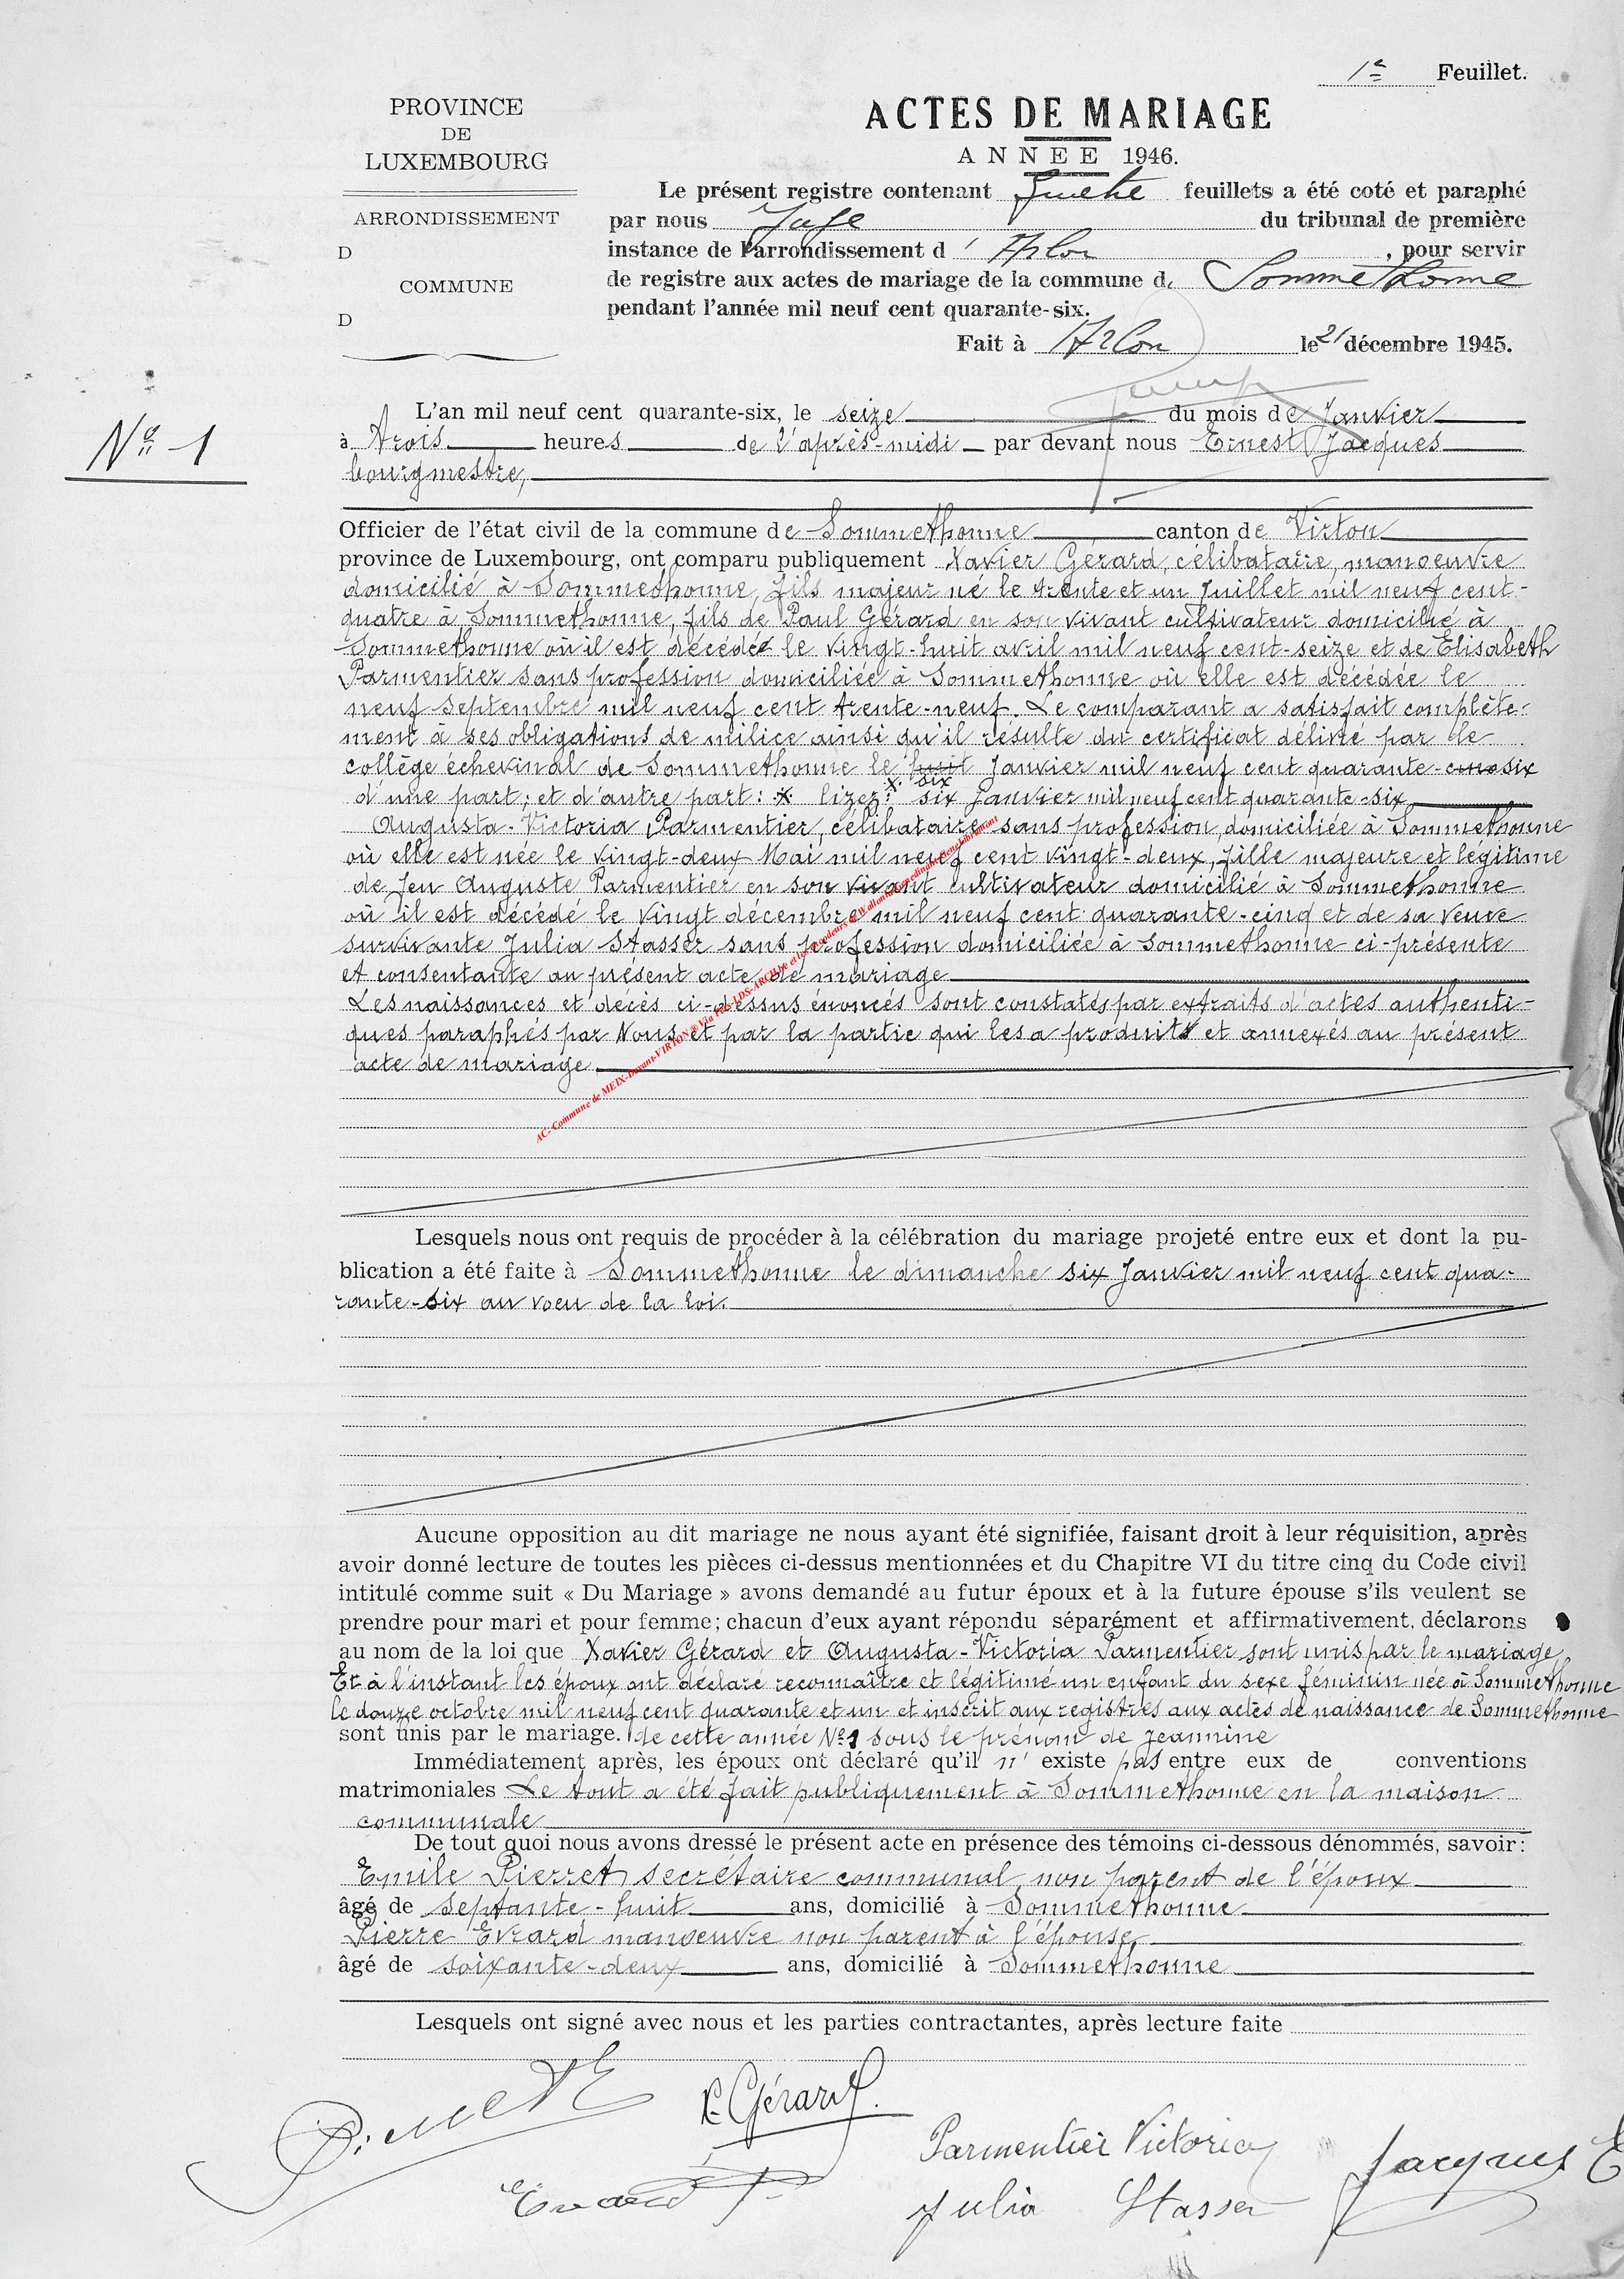 1e Feuillet.
PROVINCE
DE
LUXEMBOURG
ARRONDISSEMENT
D
COMMUNE
D
ACTES DE MARIAGE
ANNEE 1946.
Le présent registre contenant feuillets a été coté et paraphé
par nous Juge du tribunal de première
instance de l'arrondissement d' Arlon, pour servir
de registre aux actes de mariage de la commune de Sommethonne
pendant l'année mil neuf cent quarante-six.
Fait à Arlon le 21 décembre 1945.
No 1
L'an mil neuf cent quarante-six, le seize du mois de Janvier
à trois heures de l'après-midi par devant nous Ernest Jacques
bourgmestre,
Officier de l'état civil de la commune de Sommethonne canton de Virton
province de Luxembourg, ont comparu publiquement Xavier Gérard, célibataire, manoeuvre
domicilié à Sommethonne, fils majeur né le trente et un Juillet mil neuf cent-
quatre à Sommethonne, fils de Paul Gérard en son vivant cultivateur domicilié à
Sommethonne où il est décédé le vingt-huit avril mil neuf cent-seize et de Elisabeth
Parmentier sans profession domiciliée à Sommethonne où elle est décédée le
neuf septembre mil neuf cent trente-neuf. Le comparant a satisfait complète-
ment à ses obligations de milice ainsi qu'il résulte du certificat délivré par le
collège échevinal de Sommethonne le huit six Janvier mil neuf cent quarante-cinq six
d'une part; et d'autre part: x lizez: six Janvier mil neuf cent quarante-six
Augusta-Victoria Parmentier, célibataire sans profession, domiciliée à Sommethonne
où elle est née le vingt-deux Mai mil neuf cent vingt-deux, fille majeure et légitime
de feu Auguste Parmentier en son vivant cultivateur domicilié à Sommethonne
où il est décédé le vingt décembre mil neuf cent quarante-cinq et de sa veuve
survivante Julia Stasser sans profession domiciliée à Sommethonne ci-présente
et consentante au présent acte de mariage
Les naissances et décès ci-dessus énoncés sont constatés par extraits d'actes authenti-
ques paraphés par Nous et par la partie qui les a produits et annexés au présent
acte de mariage.
Lesquels nous ont requis de procéder à la célébration du mariage projeté entre eux et dont la pu-
blication a été faite à Sommethonne le dimanche six Janvier mil neuf cent qua-
rante-six au voeu de la loi.
Aucune opposition au dit mariage ne nous ayant été signifiée, faisant droit à leur réquisition, après
avoir donné lecture de toutes les pièces ci-dessus mentionnées et du Chapitre VI du titre cinq du Code civil
intitulé comme suit « Du Mariage » avons demandé au futur époux et à la future épouse s'ils veulent se
prendre pour mari et pour femme; chacun d'eux ayant répondu séparément et affirmativement, déclarons
au nom de la loi que Xavier Gérard et Augusta-Victoria Parmentier sont unis par le mariage
Et à l'instant les époux ont déclaré reconnaître et légitimé un enfant du sexe féminin née à Sommethonne
le douze octobre mil neuf cent quarante et un et inscrit aux registres aux actes de naissance de Sommethonne
sont unis par le mariage. de cette année No 1 sous le prénom de Jeannine
Immédiatement après, les époux ont déclaré qu'il n' existe pas entre eux de conventions
matrimoniales Le tout a été fait publiquement à Sommethonne en la maison
communale
De tout quoi nous avons dressé le présent acte en présence des témoins ci-dessous dénommés, savoir:
Emile Pierret secrétaire communal, non parent de l'époux
âgé de septante-huit ans, domicilié à Sommethonne
Pierre Evrard manoeuvre non parent à l'épouse
âgé de soixante-deux ans, domicilié à Sommethonne
Lesquels ont signé avec nous et les parties contractantes, après lecture faite
X. Gérard.
Parmentier Victoria
Jacques E
Evrard P
Julia Stasser